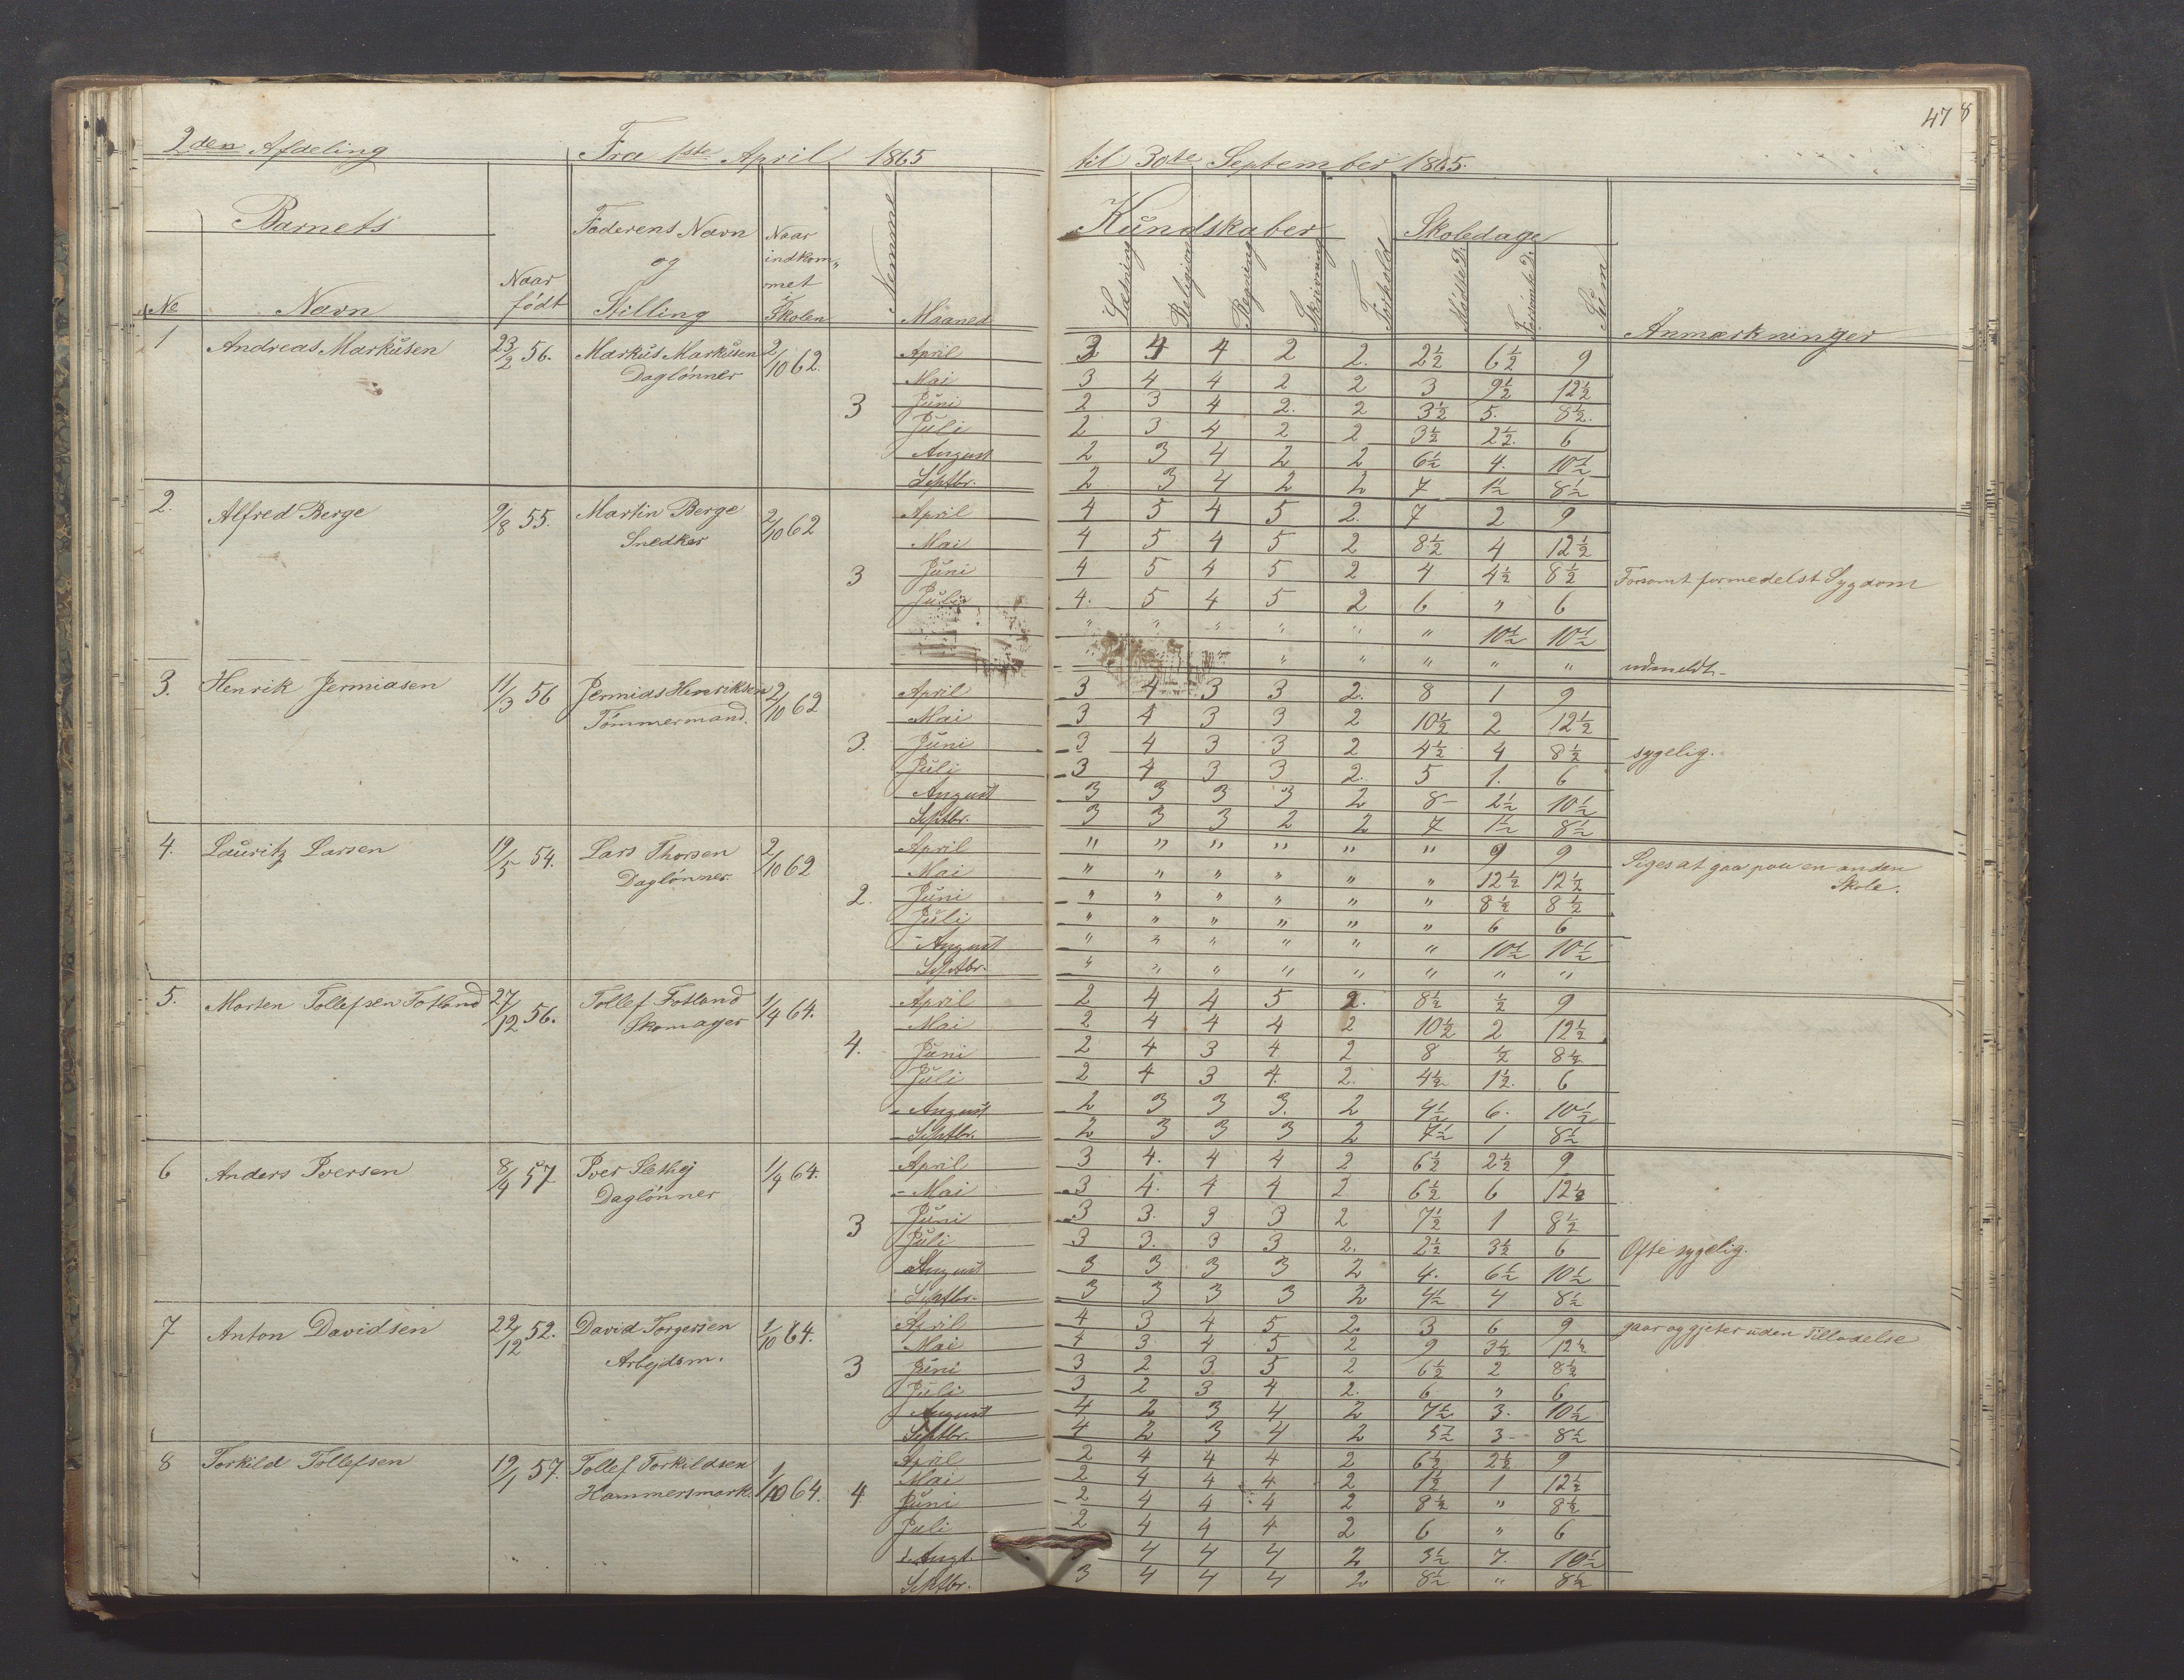 47
2den Afdeling Fra 1ste April 1865 til 30te September 1865.
Barnets Faderens Navn og Stilling Naar indkom„met i Skolen Nemme Maaned Kundskaber Skoledage Anmærkninger
No Navn Naar födt Læsning Religion Regning Skrivning Forhold Mödte D. Forsömte D. Sum
1 Andreas Markusen 23/2 56. Markus Markusen 2/10 62. April 4 4 2 2. 2½ 6½ 9
Daglönner Mai 3 4 4 2 2 3 9½ 12½
3 Juni 2 3 4 2. 2 3½ 5. 8½.
Juli 2 3 4 2 2 3½ 2½. 6
August 2 3 4 2 2 6½ 4. 10½
Septbr. 2 3 4 2 2 7 1½ 8½
2. Alfred Berge 9/8 55. Martin Berge 2/10 62 April 4 5 4 5 2. 7 2 9
Snedker Mai 4 5 4 5 2 8½ 4 12½
3 Juni 4 5 4 5 2 4 4½ 8½ Forsømt formedelst Sygdom
Juli 4. 5 4 5 2 6 „ 6
„ „ „ „ „ „ 10½ 10½
„ „ „ „ „ udmeldt
3. Henrik Jermiasen 11/3 56 Jermias Henriksen 2/10 62 April 3 4 3 3 2. 8 1 9
Tömmermand. Mai 3 4 3 3 2 10½ 2 12½
3. Juni 3 4 3 3 2 4½ 4 8½ sygelig.
Juli 3 4 3 3 2. 5 1. 6
August 3 3 3 3 2 8 2½ 10½
Septbr. 3 3 3 2 2 7 1½ 8½
4. Lauritz Larsen 19/5 54. Lars Thorsen 2/10 62 April „ „ „ „ „ „ 9 9 Siges at gaa paa en anden
Daglönner. Mai „ „ „ „ „ „ 12½ 12½ Skole.
2. Juni „ „ „ „ „ „ 8½ 8½
Juli „ „ „ „ „ „ 6 6
August „ „ „ „ „ „ 10½ 10½
Septbr. „ „ „ „ „ „ „ „
5. Morten Tollefsen Fotland 27/12 56. Tollef Fotland 1/4 64. April 2 4 4 5 2. 8½ ½ 9
Skomager Mai 2 4 4 4 2 10½ 2 12½
4. Juni 2 4 3 4 2 8 ½ 8½
Juli 2 4 3 4. 2. 4½ 1½. 6
August 2 3 3 3. 2 4½ 6. 10½
Septbr. 2 3 3 3 2 7½ 1 8½
6 Anders Iversen 8/4 57 Iver 1/4 64. April 3 4. 4 4 2 6½ 2½ 9
Daglönner Mai 3 4. 4 4 2 6½ 6 12½
3 Juni 3 3. 3 3 2 7½ 1 8½
Juli 3 3. 3 3 2. 2½ 3½ 6 Ofte sygelig.
August 3 3 3 3 2 4. 6½ 10½
Septbr. 3 3 3 3 2 4½ 4 8½
7 Anton Davidsen 22/12 52. David Torgersen 1/10 64. April 4 3 4 5 2. 3 6 9 gaar og gjeter uden Tilladelse
Arbejdsm. Mai 4 3 4 5 2 9 3½ 12½
3 Juni 3 2 3 5 2 6½ 2 8½
Juli 3 2 3 4 2. 6 „ 6
August 4 2 3 4 2 7½ 3. 10½
Septbr. 4 2 3 4 2 5½ 3 8½
8 Torkild Tollefsen 19/1 57. Tollef Torkildsen 1/10 64. April 2 4 4 4 2 6½ 2½ 9
Hammersmark. 4 Mai 2 4 4 4 2 1½ 1 12½
Juni 2 4 4 4 2 8½ „ 8½
Juli 2 4 4 4 2 6 „ 6
Augt. 4 4 4 2 3½ 7. 10½
Septbr. 3 4 4 4 2 8½ „ 8½